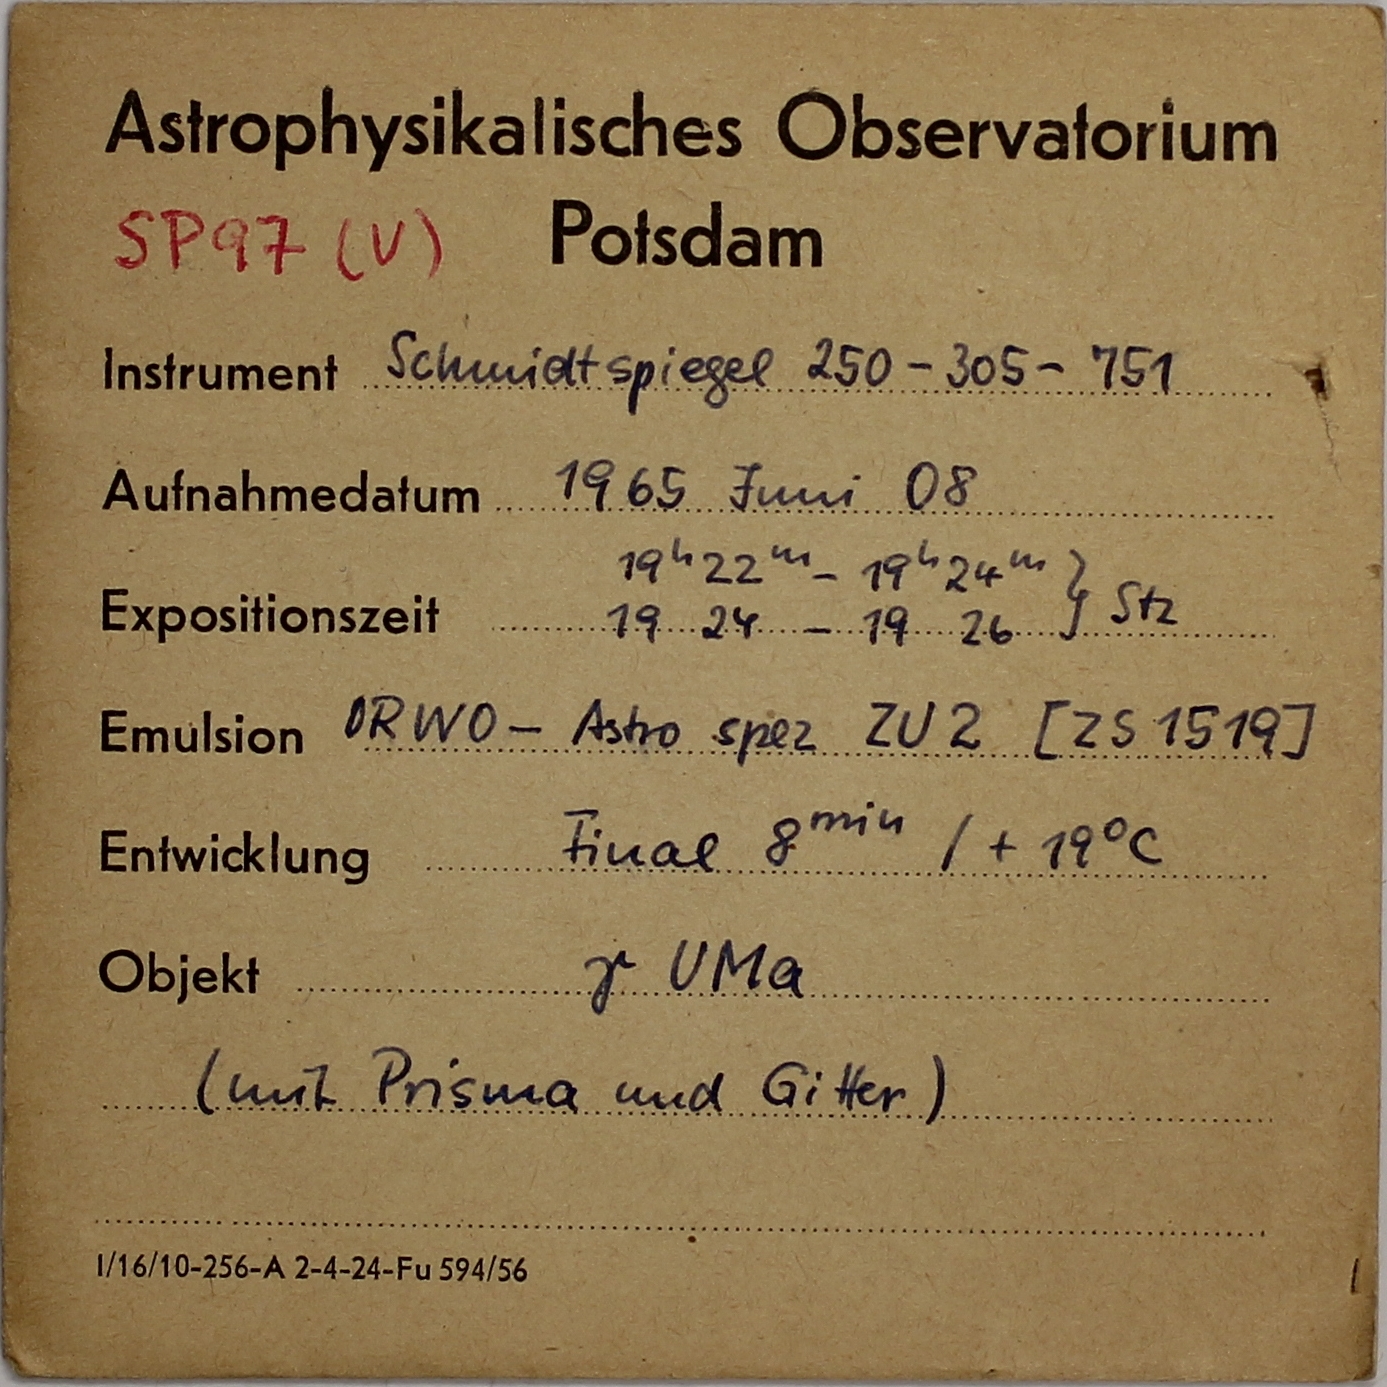 Astrophysikalisches Observatorium
SP97 (V) Potsdam
Instrument Schmidtspiegel 250-305-751
Aufnahmedatum 1965 Juni 08
19h22m - 19h24m
Expositionszeit 19 24 - 19 26 } Stz
Emulsion ORWO - Astro spez ZU2 [ZS1519]
Entwicklung Final 8min / + 19°C
Objekt γ UMa
(mit Prisma und Gitter)
I/16/10-256-A 2-4-24-Fu 594/56